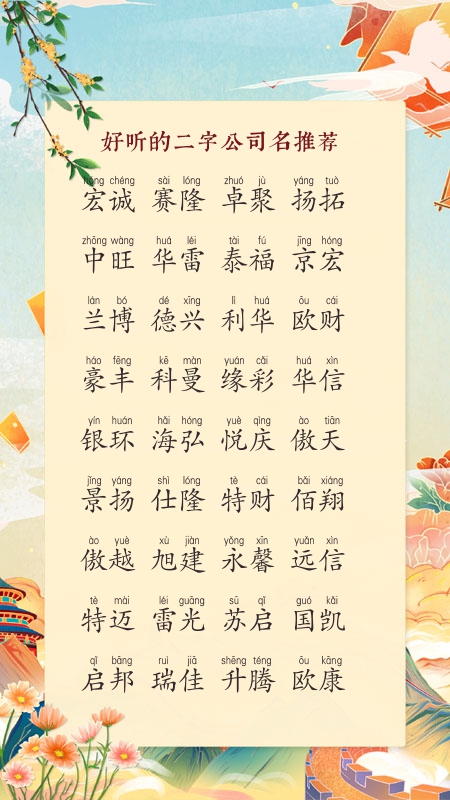 好听的二字公司名推荐
hóng chéng sài lóng zhuó jù yáng tuò
宏诚 赛隆 卓聚 扬拓
zhōng wàng huá léi tài fú jīng hóng
中旺 华雷 泰福 京宏
lán bó dé xīng lì huá ōu cái
兰博 德兴 利华 欧财
háo fēng kē màn yuán cǎi huá xìn
豪丰 科曼 缘彩 华信
yín huán hǎi hóng yuè qìng ào tiān
银环 海弘 悦庆 傲天
jǐng yáng shì lóng tè cái bǎi xiáng
景扬 仕隆 特财 佰翔
ào yuè xù jiàn yǒng xīn yuǎn xìn
傲越 旭建 永馨 远信
tè mài léi guāng sū qǐ guó kǎi
特迈 雷光 苏启 国凯
qǐ bāng ruì jiā shēng téng ōu kāng
启邦 瑞佳 升腾 欧康